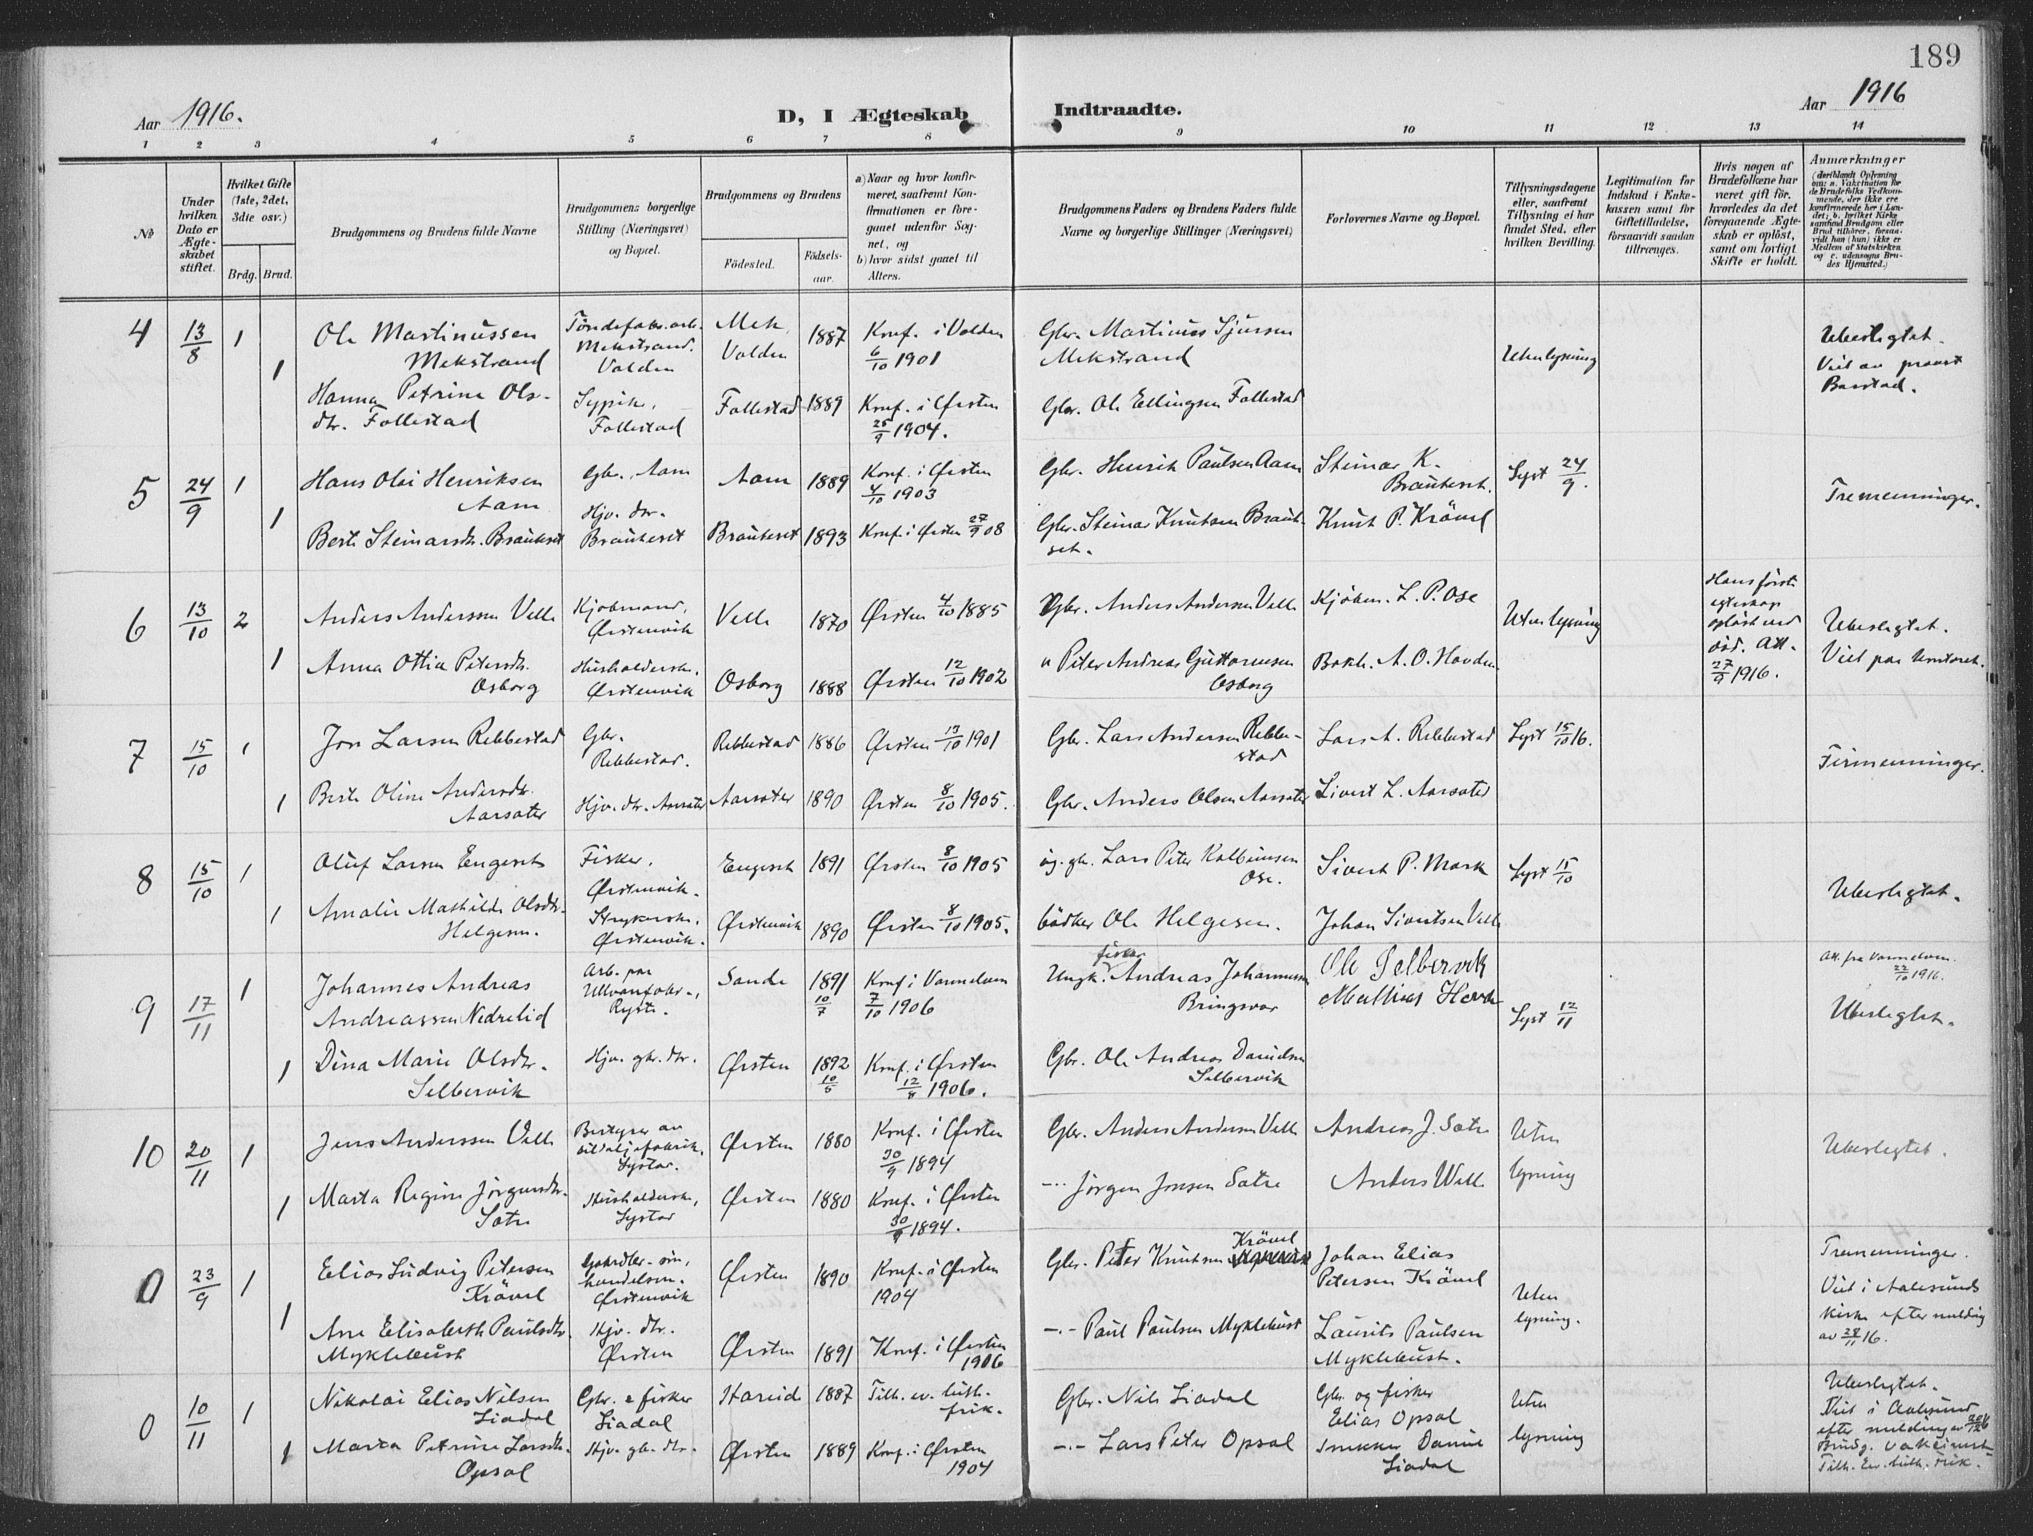 189
Aar 1916.
D, I Ægteskab Indtraadte.
Aar 1916
1 2 3 4 5 6 7 8 9 10 11 12 13 14
No
Under hvilken Dato er Ægteskabet stiftet.
Hvilket Gifte (1ste, 2det, 3die osv.)
Brdg. Brud.
Brudgommens og Brudens fulde Navne
Brudgommens borgerlige Stilling (Næringsvei) og Bopæl.
Brudgommens og Brudens
Födested.
Födselsaar.
a) Naar og hvor konfirmeret, saafremt Konfirmationen er foregaaet udenfor Sognet, og
b) hvor sidst gaaet til Alters.
Brudgommens Faders og Brudens Faders fulde Navne og borgerlige Stillinger (Næringsvei)
Forlovernes Navne og Bopæl.
Tillysningsdagene eller, saafremt Tillysning ei har fundet Sted, efter hvilken Bevilling.
Legitimation for Indskud i Enkekassen samt for Giftetilladelse, forsaavidt saadan tiltrænges.
Hvis nogen af Brudefolkene har været gift för, hvorledes da det foregaaende Ægteskab er oplöst, samt om lovligt Skifte er holdt.
Anmærkninger (deriblandt Oplysning om: a. Vakcination for de Brudefolks Vedkommende, der ikke ere konfirmerede her i Landet; b. hvilket Kirkesamfund Brudgom eller Brud tilhörer, forsaavidt han (hun) ikke er Medlem af Statskirken og c. udensogns Brudes Hjemsted.)
4 13/8 1 Ole Martinussen Mekstrand Töndefabr.arb. Mekstrand. Volden Mek, Volden 1887 Konf. i Volden 6/10 1901 Gbr. Martinus Sjursen Mekstrand Uten lysning Ubeslegtet. Viet av prost Barstad.
1 Hanna Petrine Olsdtr. Follestad Sypike, Follestad Follestad 1889 Konf. i Ørsten 25/9 1904. Gbr. Ole Ellingsen Follestad
5 24/9 1 Hans Olai Henriksen Aam Gbr. Aam Aam 1889 Konf. i Ørsten 4/10 1903 Gbr. Henrik Paulsen Aam Steinar K. Brauteset. Lyst 24/9. Tremenninger.
1 Berte Steinarsdtr. Brauteset Hjv. dtr. Brauteset Brauteset 1893 Konf. i Ørsten 27/9 08 Gbr. Steinar Knutsen Brautset. Knut P. Krövel
6 13/10 2 Anders Anderssen Velle Kjöbmand, Ørstenvik Velle 1870 Ørsten 4/10 1885 Gbr. Anders Andersen Velle Kjöbm. L. P. Ose Uten lysning Hans förste egteskap oplöst ved död. Att. 27/9 1916. Ubeslegtet. Viet paa kontoret.
1 Anna Ottia Petersdtr. Osborg Husholderske, Ørstenvik Osborg 1888 Ørsten 12/10 1902 " Peter Andreas Guttormsen Osborg Bokh. A. O. Hovden
7 15/10 1 Jon Larsen Rebbestad Gbr. Rebbestad. Rebbestad 1886 Ørsten 13/10 1901 Gbr. Lars Andersen Rebbestad Lars A. Rebbestad Lyst 15/10 16. Firmenninger.
1 Berte Oline Andersdtr. Aarsæter Hjv. dtr. Aarsæter Aarsæter 1890 Ørsten 8/10 1905. Gbr. Anders Olsen Aarsæter Sivert L. Aarsæter
8 15/10 1 Oluf Larsen Engeset Fisker, Ørstenvik. Engeset 1891 Ørsten 8/10 1905 ug. gb. Lars Peter Kolbeinsen Ose. Sivert P. Mork Lyst 15/10 Ubeslegtet.
1 Amalie Mathilde Olsdtr. Helgesen. Strykerske, Ørstenvik. Ørstenvik 1890 Ørsten 8/10 1905. bödker Ole Helgesen. Johan Sivertsen Velle
9 17/11 1 Johannes Andreas Andreassen Nedrelid Arb. paa Ullvarefabr., Ryste. Sande 1891 10/7 Konf i Vannelven 7/10 1906 Ungk. fisker Andreas Johannessen Bringsvor Ole Selbervik Mathias Hovde Lyst 12/11 Att. fra Vannelven 22/10 1916. Ubeslegtet.
1 Dina Marie Olsdtr. Selbervik Hjv. gbr. dtr. Ørsten 1892 10/5 Konf. i Ørsten 12/8 1906. Gbr. Ole Andreas Danielsen Selbervik
10 20/11 1 Jens Anderssen Velle Bestyrer av Systar. Ørsten 1880 Konf. i Ørsten 30/9 1894 Gbr. Anders Andersen Velle Andreas J. Sætre Uten lysning Ubeslegtet.
1 Marta Regine Jörgensdtr. Sætre Husholderske, Systad Ørsten 1880 Konf. i Ørsten 30/9 1894. -"- Jörgen Jonsen Sætre Anders Velle
0 23/9 1 Elias Ludvig Petersen Krövel handelsm. Ørstenvik Ørsten 1890 Konf. i Ørsten 1904 Gbr. Peter Knutsen Krövel Johan Elias Petersen Krövel Uten lysning. Tremenninger. Viet i Aalesunds kirke efter melding av 28/11 16.
1 Ane Elisabeth Paulsdtr. Myklebust Hjv. dtr. Ørsten Ørsten 1891 Konf. i Ørsten 1906 -"- Paul Paulsen Myklebust Laurits Paulsen Myklebust.
0 10/11 1 Nikolai Elias Nilsen Liadal Gbr. & fisker Liadal Hareid 1887 Tilh. ev. luth. frik. Gbr. Nils Liadal Gbr. og fisker Elias Opsal Uten lysning Ubeslegtet. Viet i Aalesund efter melding av Brudg. vakcinert Tilh. Ev. luth. frik.
1 Marta Petrine Larsdtr. Opsal Hjv. gb. dtr. Ørsten 1889 Konf. i Ørsten 1904 -"- Lars Peter Opsal snekker Daniel Liadal